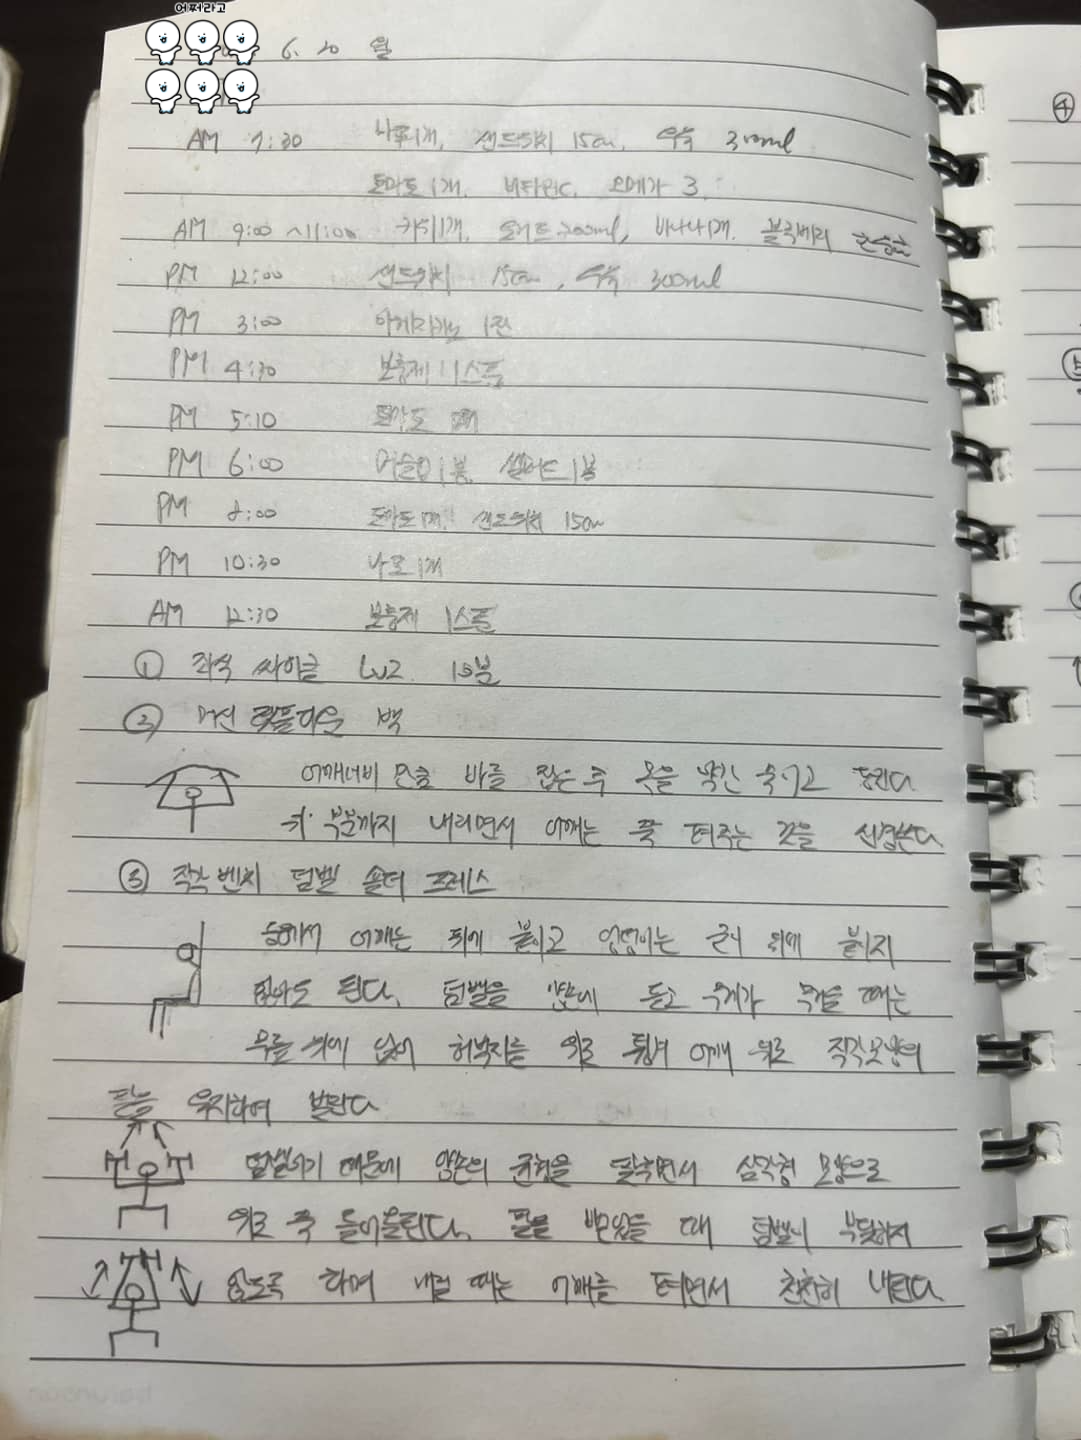 어쩌라고
6. 20 월
AM 7:30 샌드위치 15cm, 우유 300ml
토마토 1개. 비타민C. 오메가 3.
AM 9:00 ~11:00 키위1개, 바나나1개. 블랙베리 한웅큼
PM 12:00 샌드위치 15cm, 우유 300ml
PM 3:00 아메리카노 1잔
PM 4:30 보충제 1스푼
PM 5:10 토마토
PM 6:00 1봉. 샐러드 1봉
PM 8:00 토마토 1개. 샌드위치 15cm
PM 10:30 1개
AM 12:30 보충제 1스푼
① 좌식 싸이클 Lv2 10분
② 머신 랫풀다운 백
어깨너비 만큼 바를 잡은 후 몸을 약간 숙이고 당긴다
귀 부분까지 내리면서 어깨는 쭉 펴주는 것을 신경쓴다
③ 직각 벤치 덤벨 숄더 프레스
어깨는 뒤에 붙이고 엉덩이는 굳이 뒤에 붙이지
않아도 된다. 덤벨을 양손에 들고 무게가 무거울 때는
무릎 위에 얹어 허벅지를 위로 튕겨 어깨 위로 직각모양의
팔을 유지하여 보낸다
덤벨이기 때문에 양손의 균형을 맞추면서 삼각형 모양으로
위로 쭉 들어올린다. 팔을 뻗었을 때 덤벨이 부딪히지
않도록 하며 내릴 때는 어깨를 펴면서 천천히 내린다.
④